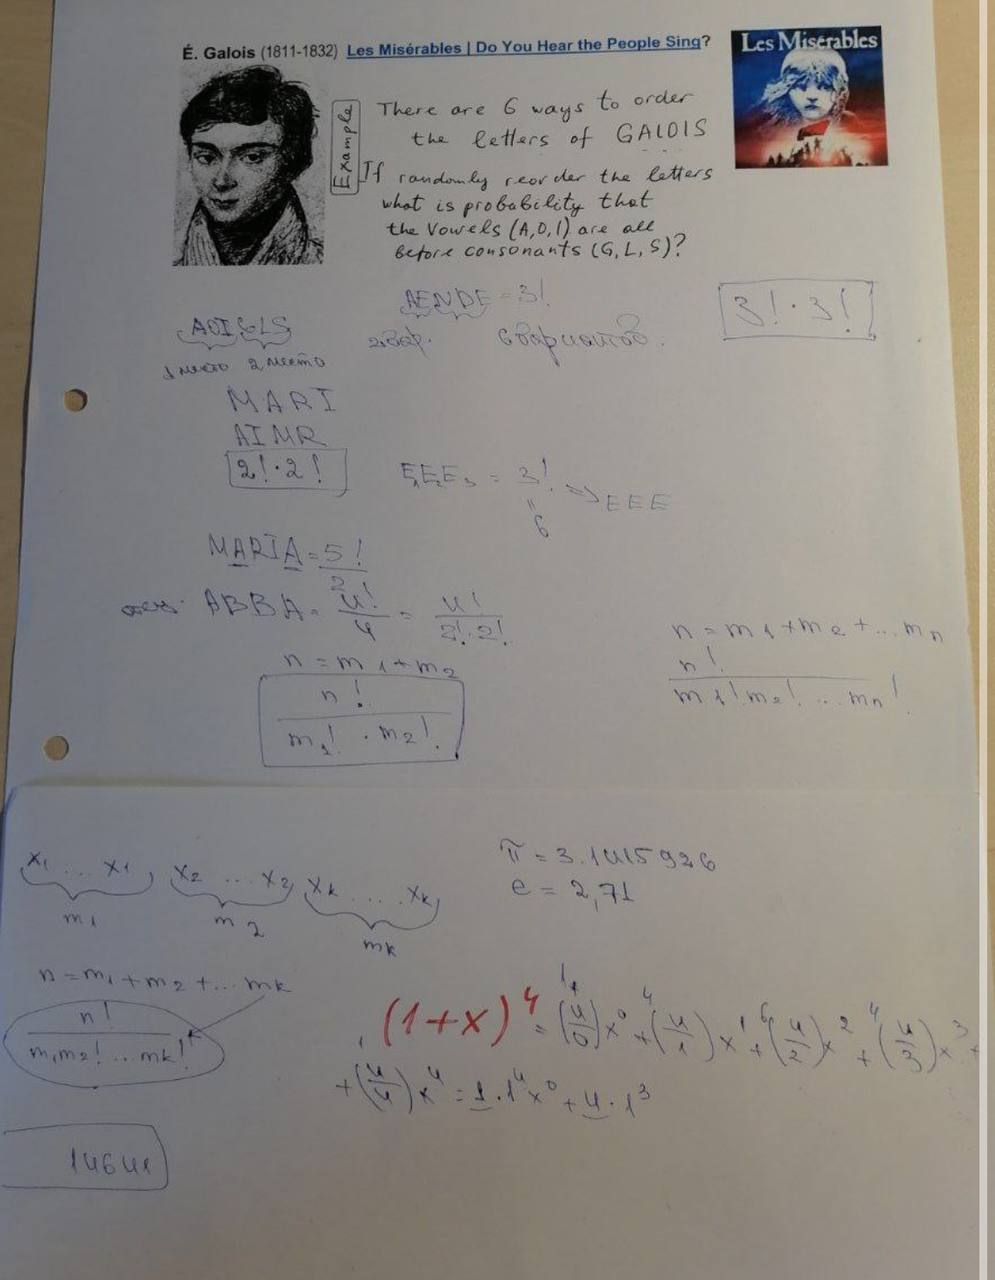 É. Galois (1811-1832) Les Misérables | Do You Hear the People Sing?
Les Misérables
Example
There are 6 ways to order
the letters of GALOIS
If randomly reorder the letters
what is probability that
the Vowels (A,O,I) are all
before consonants (G, L, S)?
= 3!
3! · 3!
AOI GLS
6 вариантов.
1 место 2 место
MARI
AIMR
2! · 2!
E₁E₂E₃ = 3! => EEE
= 6
MARIA = 5!/2
ABBA = 4!/4 = 4!/(2!·2!)
n = m₁ + m₂
n!/(m₁! · m₂!)
n = m₁ + m₂ + ... mₙ
n!/(m₁! m₂! ... mₙ!)
x₁ ... x₁ x₂ ... x₂ xₖ .... xₖ
m₁ m₂ mₖ
π = 3.1415926
e = 2,71
n = m₁ + m₂ + ... mₖ
n!/(m₁m₂! ... mₖ!)
(1+x)⁴ = (4/0)x⁰ + (4/1)x¹ + (4/2)x² + (4/3)x³ +
1 4 6 4
+ (4/4)x⁴ = 1·1⁴x⁰ + 4·1³
14641